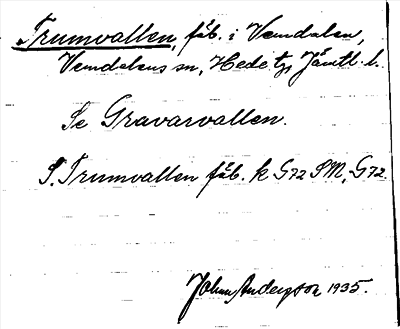 Trumvallen, fäb. i Vemdalen,
Vemdalens sn, Hede tg, Jämtl. l.
Se Gravarvallen.
S. Trumvallen fäb. k G72 SM, G72.
Johan Anderson 1935.